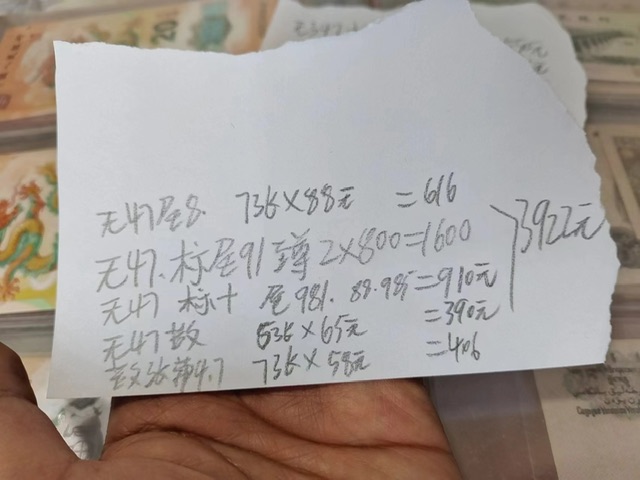 3922元
无47尾8. 7张×88元 =616
无47.标尾91 2×800=1600
无47 标十 尾981.88.985=910元
无47散 6张×65元 =390元
4.7 7张×58元 =406
20